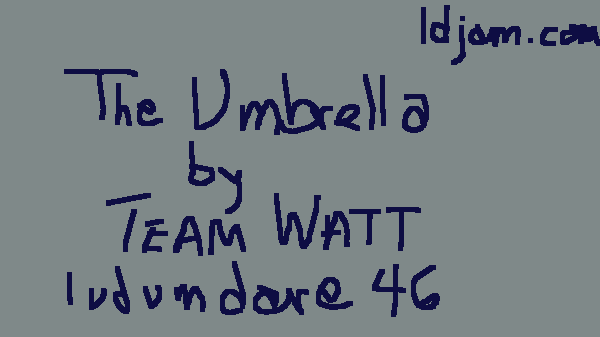 ldjam.com
The Umbrella
by
TEAM WATT
ludumdare 46